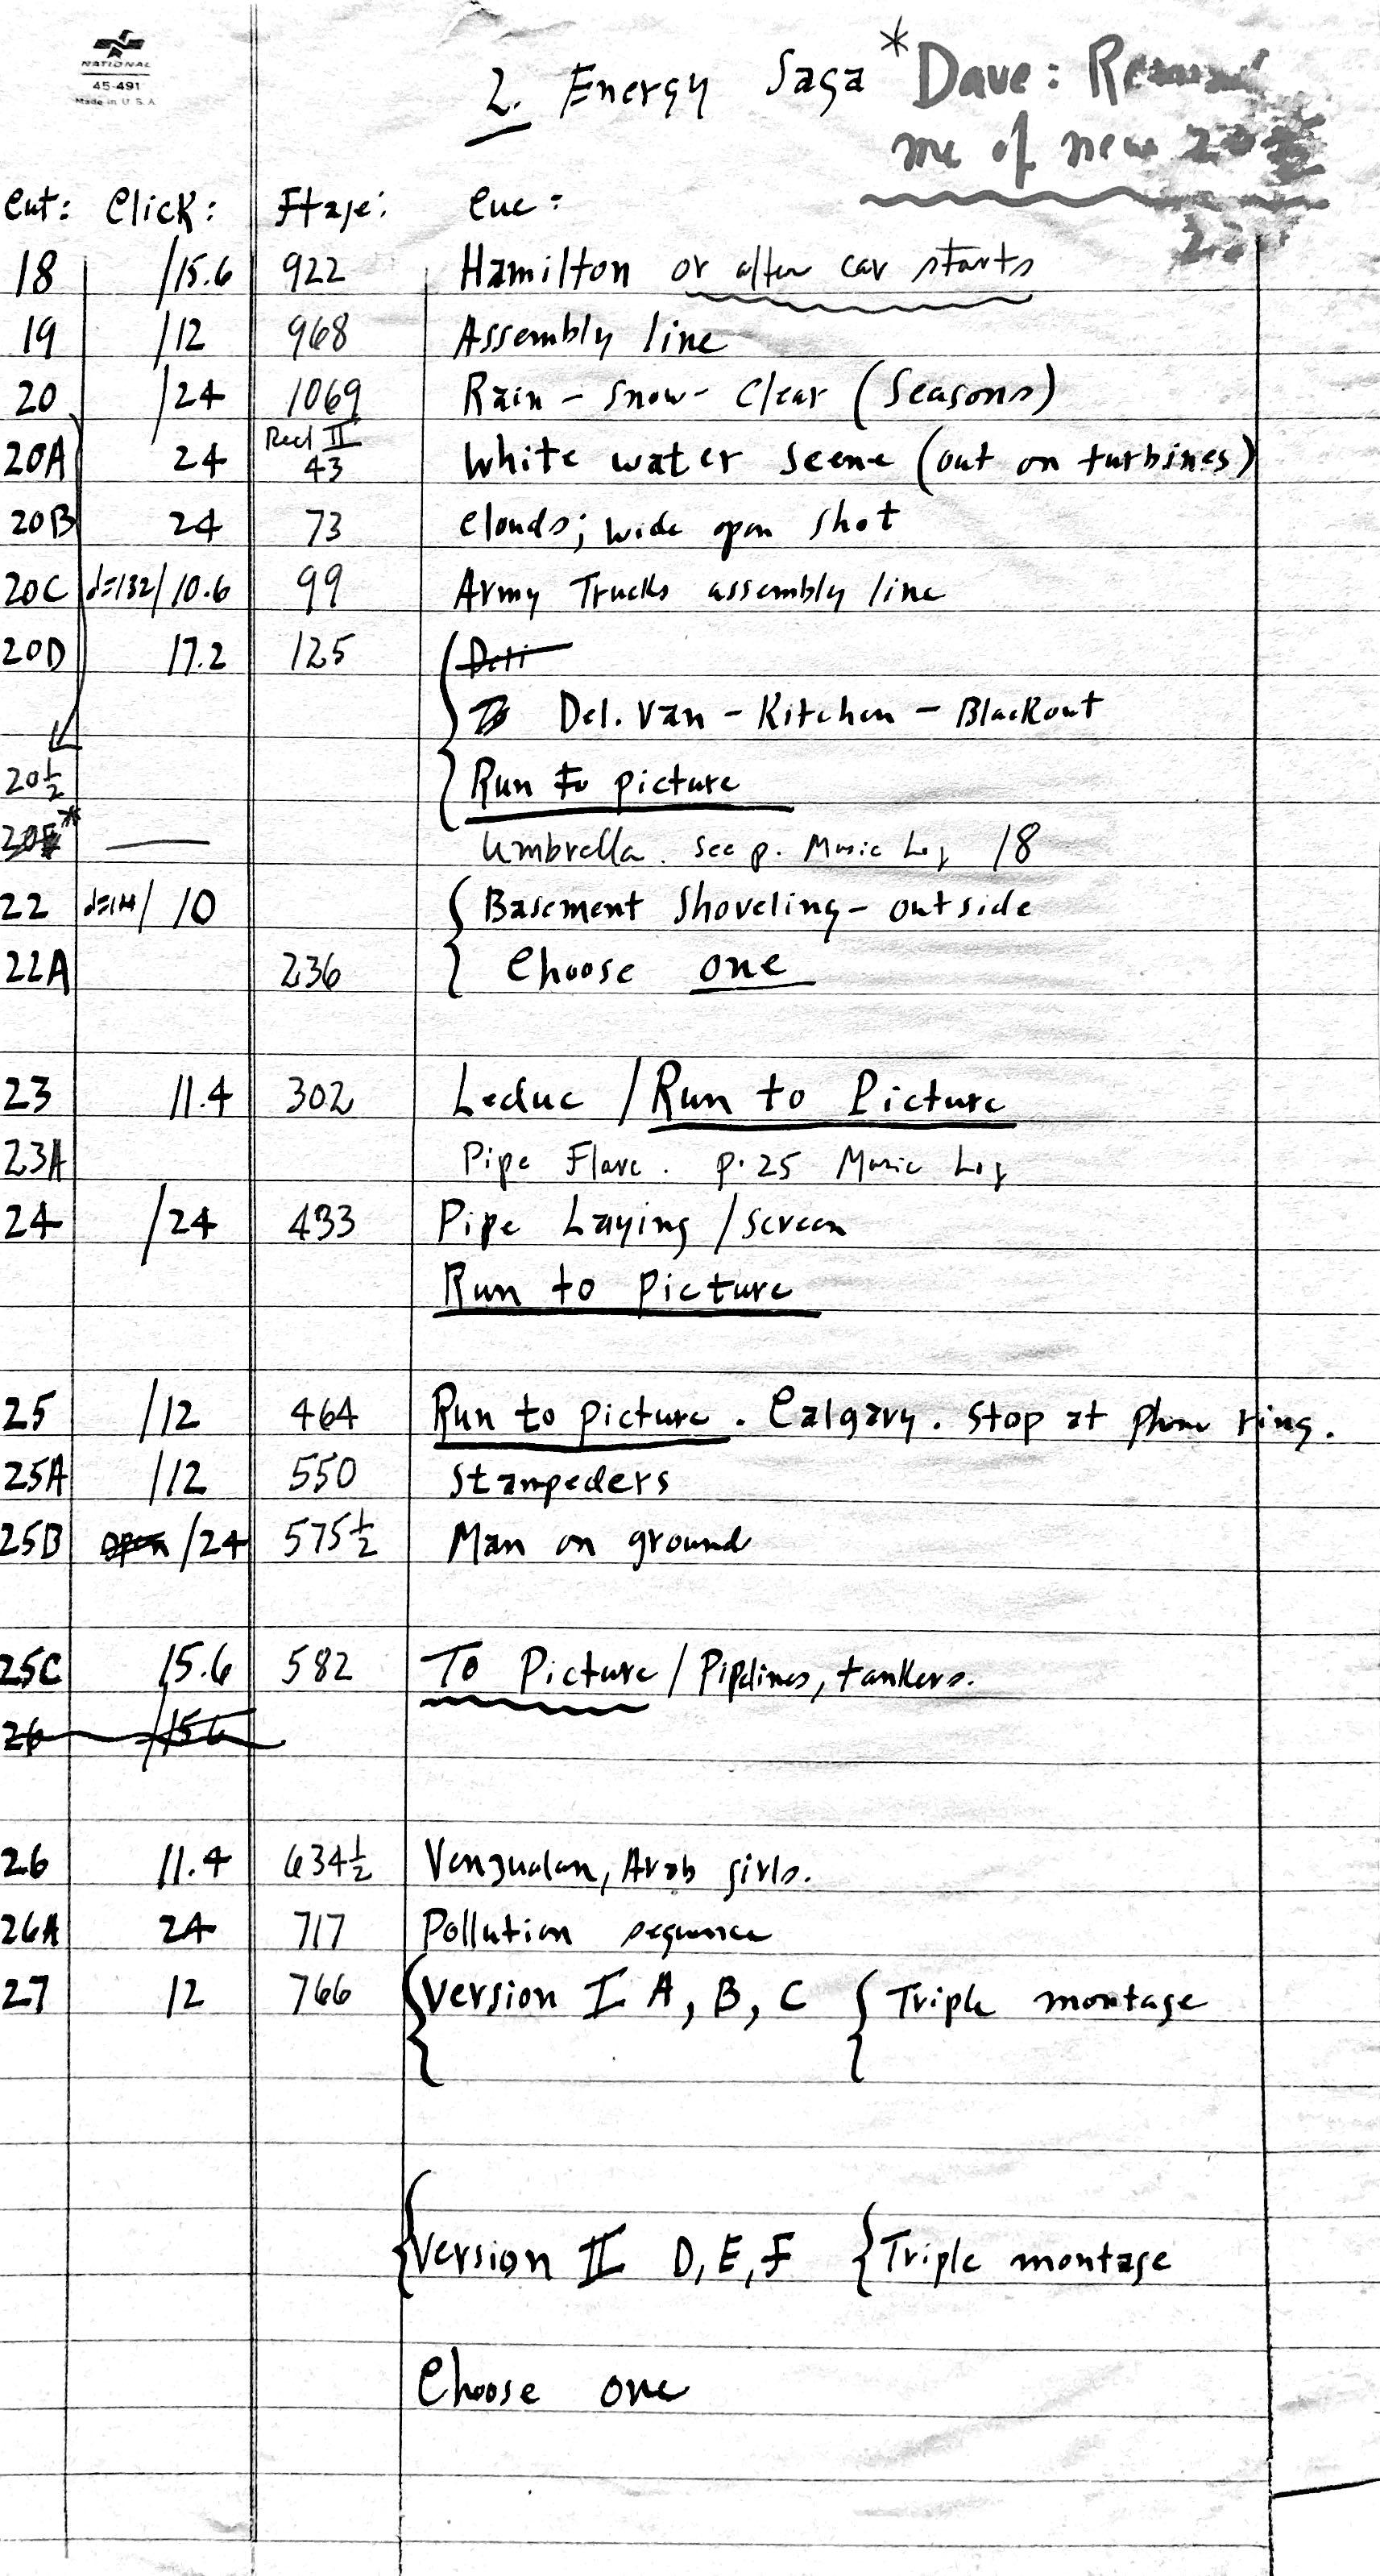 NATIONAL
45-491
Made in U.S.A
2. Energy Saga * Dave: Remind
me of new
Cut: Click: Ftage: Cue:
18 /15.6 922 Hamilton or after car starts
19 /12 968 Assembly line
20 /24 1069 Rain - Snow - Clear (Seasons)
20A 24 Reel II 43 White water scene (out on turbines)
20B 24 73 Clouds; wide open shot
20C d=132/10.6 99 Army Trucks assembly line
20D 17.2 125
Del. Van - Kitchen - Blackout
20½ Run to picture
* — Umbrella. See p. Music Log 18
22 d=144/ 10 Basement Shoveling - outside
22A 236 Choose one
23 11.4 302 Leduc / Run to Picture
23A Pipe Flare. p. 25 Music Log
24 /24 433 Pipe Laying / screen
Run to picture
25 /12 464 Run to picture. Calgary. Stop at phone ring.
25A /12 550 Stampeders
25B open /24 575½ Man on ground
25C 15.6 582 To Picture / Pipelines, tankers.
26 /15.6
26 11.4 634½ Venzualan, Arab girls.
26A 24 717 Pollution sequence
27 12 766 Version I A, B, C { Triple montage
Version II D, E, F { Triple montage
Choose one